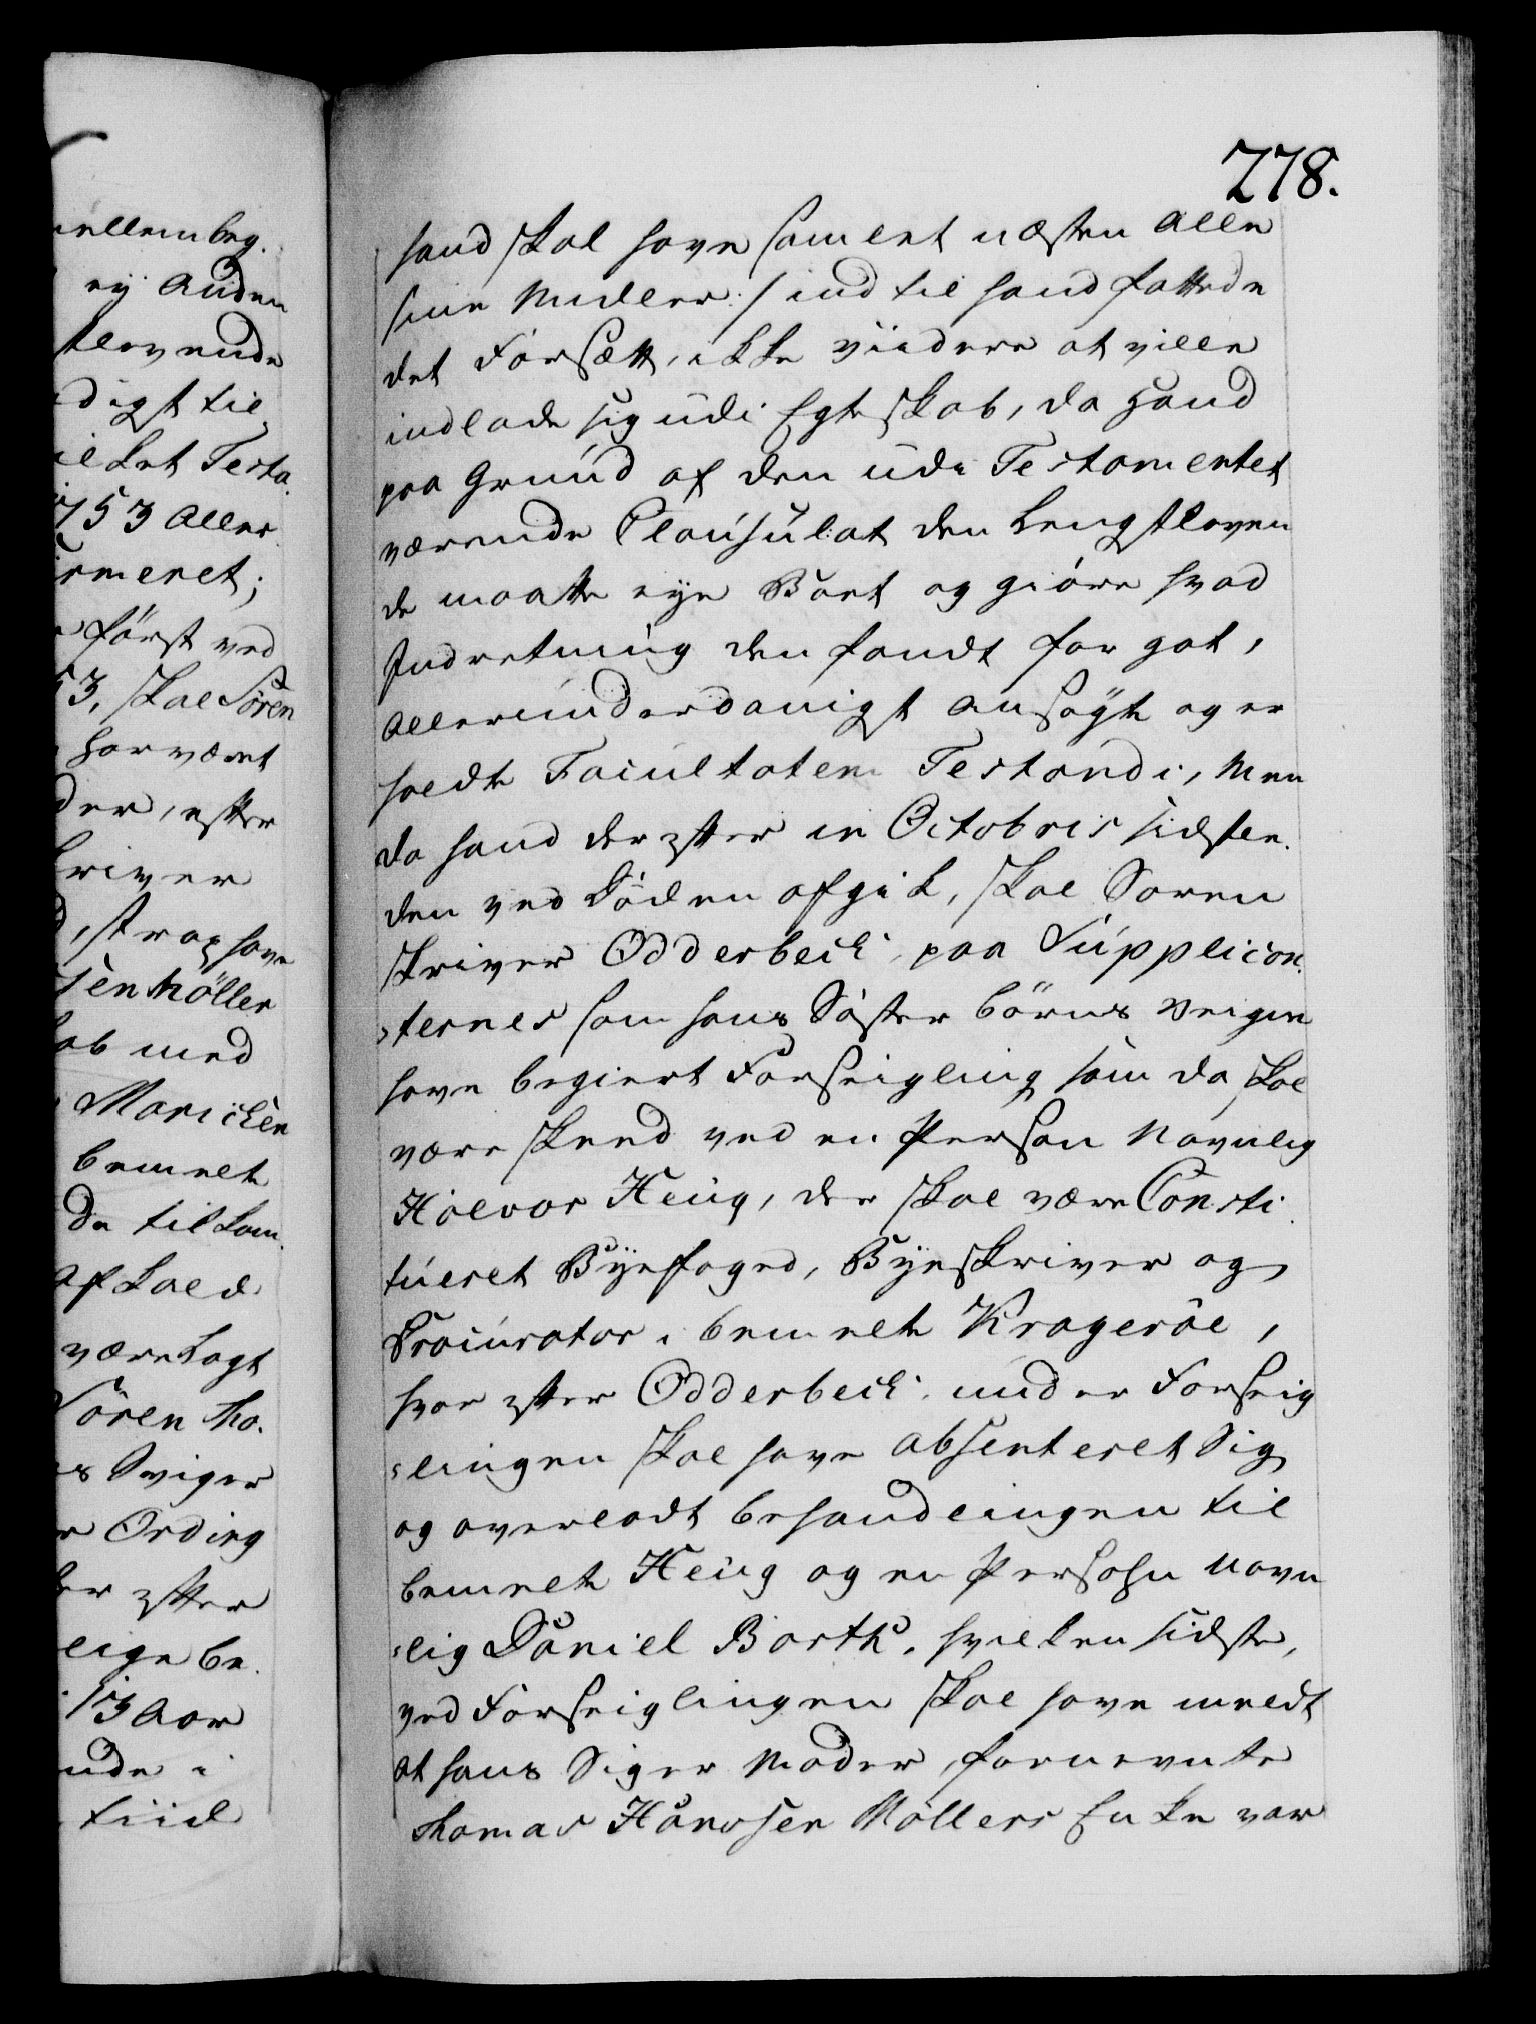 278.
hand skal have samlet næsten alle
sine Midler :/ indtil hand fattede
det Forsætt, ikke viidere at ville
indlade sig udi Egteskab, da Hand
paa Grund af den udi Testamentet
værende Clausul at den Lengstleven
de maatte eÿe Boet og giöre hvad
Indretning den fandt for got,
allerunderdanigst ansögte og er
holdte Facultatem Testandi, Men
da hand derefter in Octobris sidste.
den ved Döden afgik, skal Soren
skriver Odderbech paa Supplican.
ternes som hans Söster börns Veigne
have begiert Forseigling som da skal
være skeed ved en Person Navnlig
Halvor Heüg, der skal være Consti
tueret Bÿefoged, Bÿeskriver og
Procurator i bemelte Krageröe,
hvorefter Odderbech under Forseig
lingen skal have absenteret Sig
og overladt behandlingen til
bemelte Heüg og en Persohn Navn
lig Daniel Barth, hvilken sidste,
ved Forseiglingen skal have meldt
at hans Siger Moder, fornevnte
Thomas Hanssen Möllers Enke var
mellem beg.
eÿ anden
stlevende
digst til
ilket Testa.
1753 aller
irmeret;
först ved
53, skal Sören
har været
der, efter
kriver
, strax have
sen Möller
ab med
Marichen
bemelte
de tilkom.
afkald
være lagt
Sören Tho.
Sviger
Ording
er efter
lige be.
13 Aar
nde i
tiid